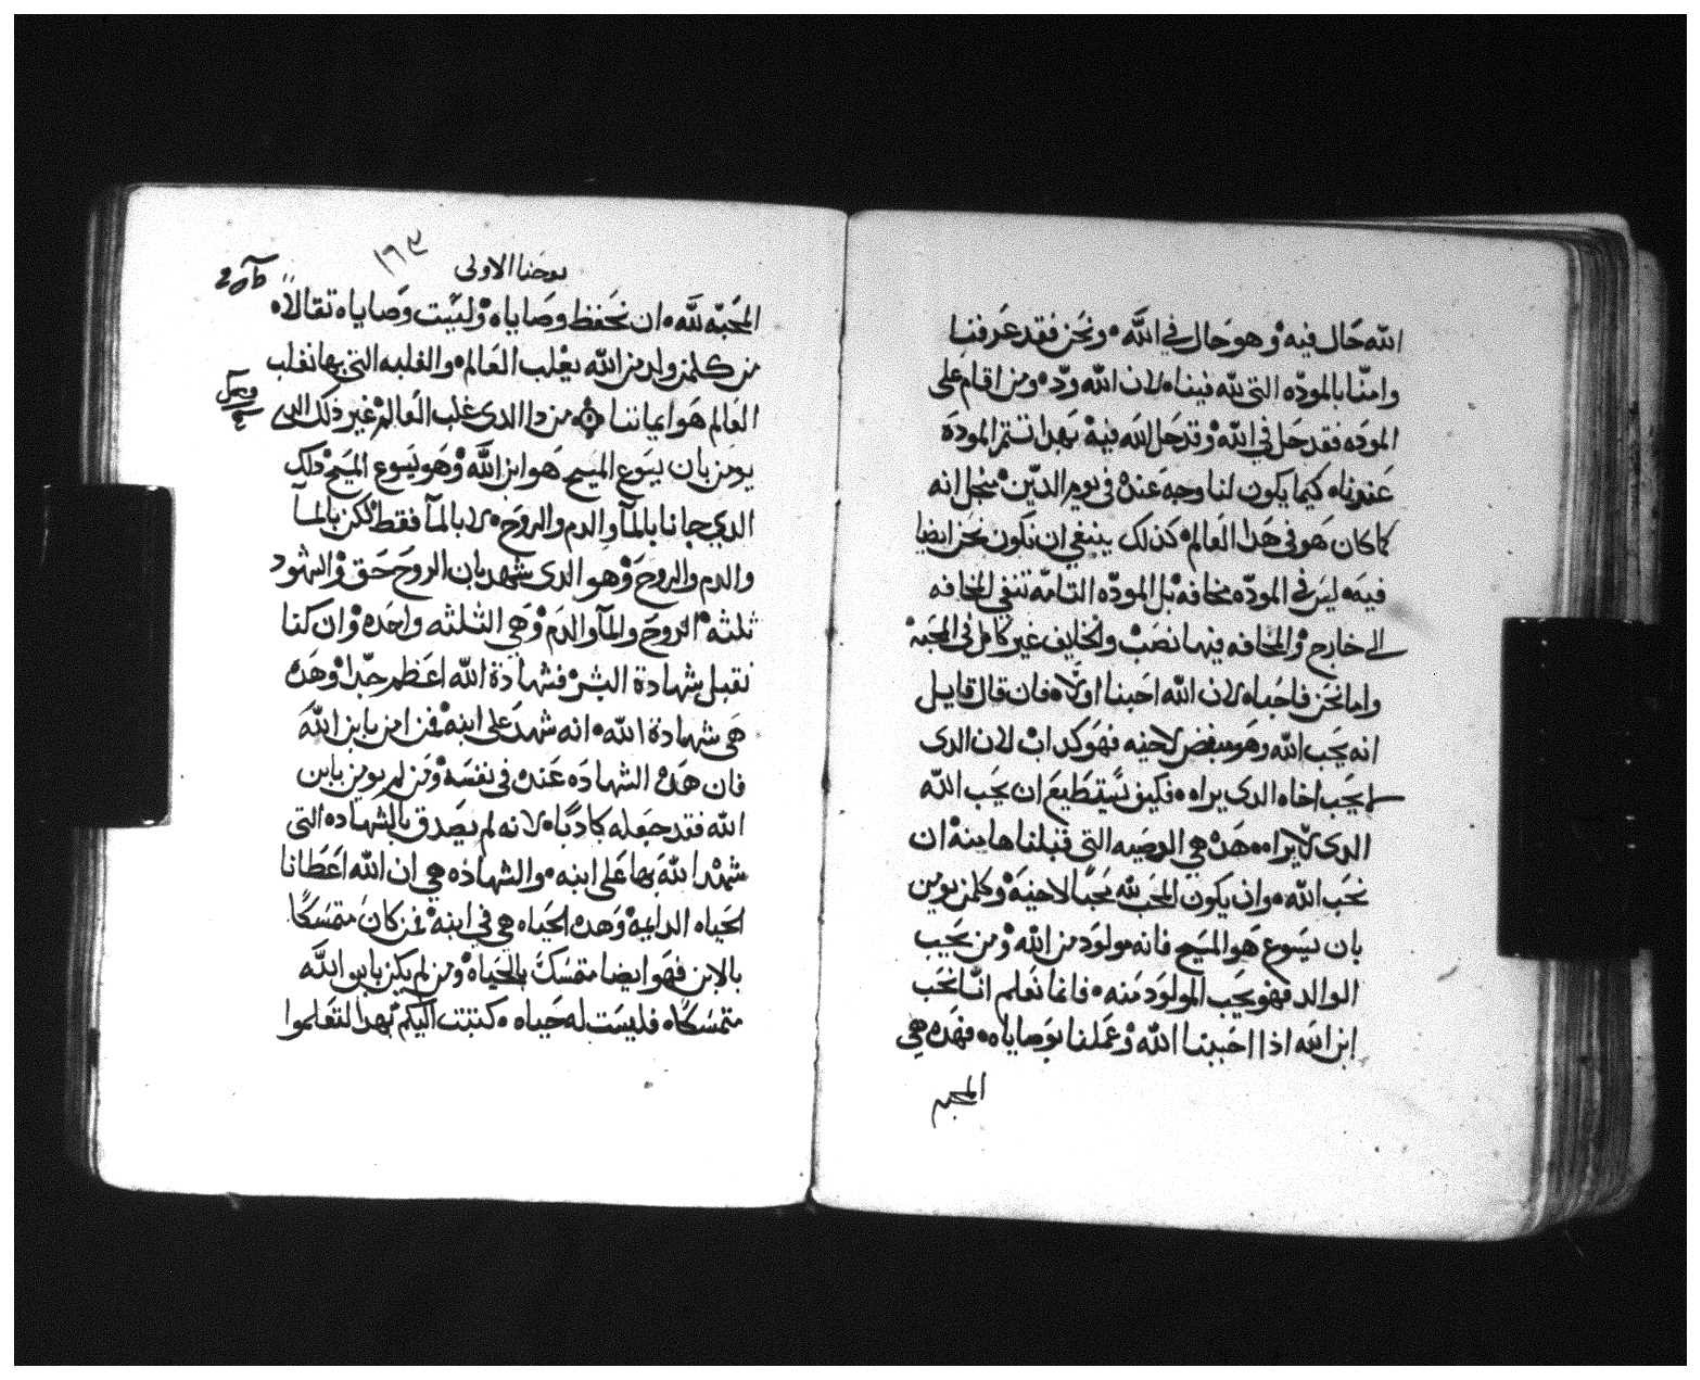 الله حال فيه وهو حال في الله ونحن فقد عرفنا
وامنا بالموده التي لله فينا لان الله ود ومن اقام على
الموده فقد حل في الله وقد حل الله فيه بهدا تتم المودة
عندنا كيما يكون لنا وجه عنده في يوم الدين من اجل انه
كما كان هو في هدا العالم كذلك ينبغي ان نكون نحن ايضا
فيه ليس في الموده مخافه بل الموده التامه تنفي المخافه
الى خارج والمخافه فيها نصب والخايف غير كامل في المحبه
واما نحن فاحباه لان الله احبنا اولا فان قال قايل
انه يحب الله وهو مبغض لاخيه فهو كداب لان الدى
لا يحب اخاه الدى يراه فكيف يستطيع ان يحب الله
الدى لا يراه هده هي الوصيه التي قبلناها منه ان
نحب الله وان يكون المحب لله محبا لاخيه وكلمن يومن
بان يسوع هو المسيح فانه مولود من الله ومن يحب
الوالد فهو يحب المولود منه فانما نعلم انا نحب
ابن الله اذا احببنا الله وعملنا بوصاياه فهده هي
المحبه
يوحنا الاولى
المحبه لله ان نحفظ وصاياه وليست وصاياه تقالا
من كلمن ولد من الله يغلب العالم والغلبه التي بها نغلب
العالم هو ايماننا من دا الدى غلب العالم غير ذلك الدى
يومن بان يسوع المسيح هو ابن الله وهو يسوع المسيح دلك
الدي جانا بالمآ والدم والروح لا بالمآ فقط لكن بالمآ
والدم والروح وهو الدى شهد بان الروح حق والشهود
ثلثه الروح والمآ والدم وهي الثلثه واحده وان كنا
نقبل شهادة البشر فشهادة الله اعظم جدا وهده
هي شهادة الله انه شهد على ابنه فمن امن بابن الله
فان هده الشهاده عنده في نفسه ومن لم يومن بابن
الله فقد جعله كادبا لانه لم يصدق بالشهاده التي
شهد الله بها على ابنه والشهاده هي ان الله اعطانا
الحياه الدايمه وهده الحياه هي في ابنه فمن كان متمسكا
بالابن فهو ايضا متمسك بالحياه ومن لم يكن بابن الله
متمسكا فليست له حياه كتبت اليكم بهدا لتعلموا